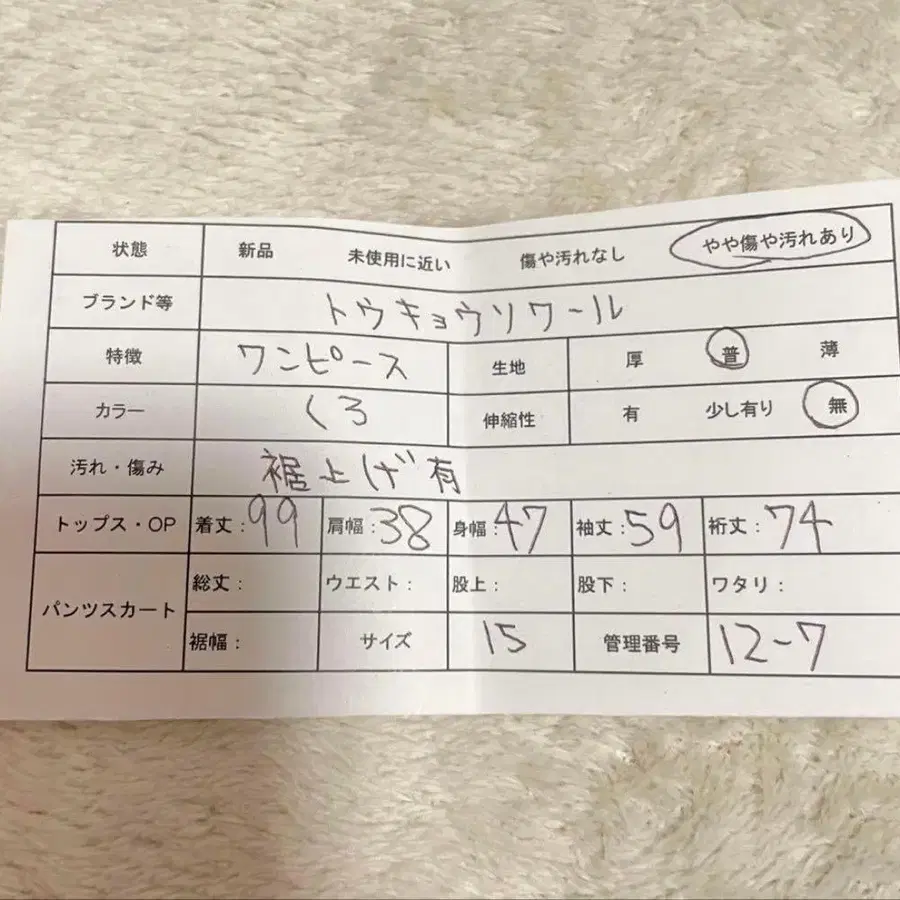 状態 新品 未使用に近い 傷や汚れなし やや傷や汚れあり
ブランド等 トウキョウソワール
特徴 ワンピース 生地 厚 普 薄
カラー くろ 伸縮性 有 少し有り 無
汚れ・傷み 裾上げ有
トップス・OP 着丈:99 肩幅:38 身幅:47 袖丈:59 裄丈:74
パンツスカート 総丈: ウエスト: 股上: 股下: ワタリ:
裾幅: サイズ 15 管理番号 12-7